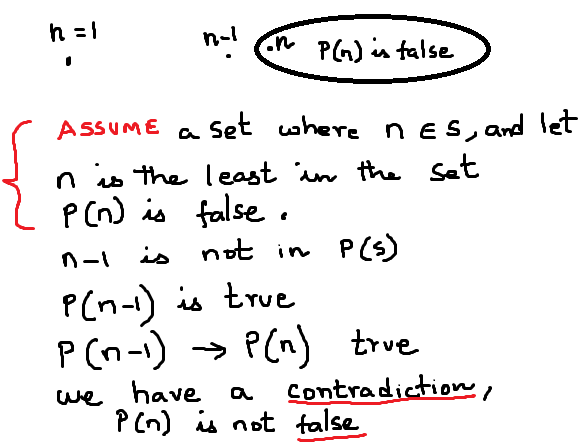 n = 1 n-1 .n P(n) is false
ASSUME a set where n ∈ S, and let
n is the least in the set
P(n) is false.
n-1 is not in P(s)
P(n-1) is true
P(n-1) → P(n) true
we have a contradiction,
P(n) is not false